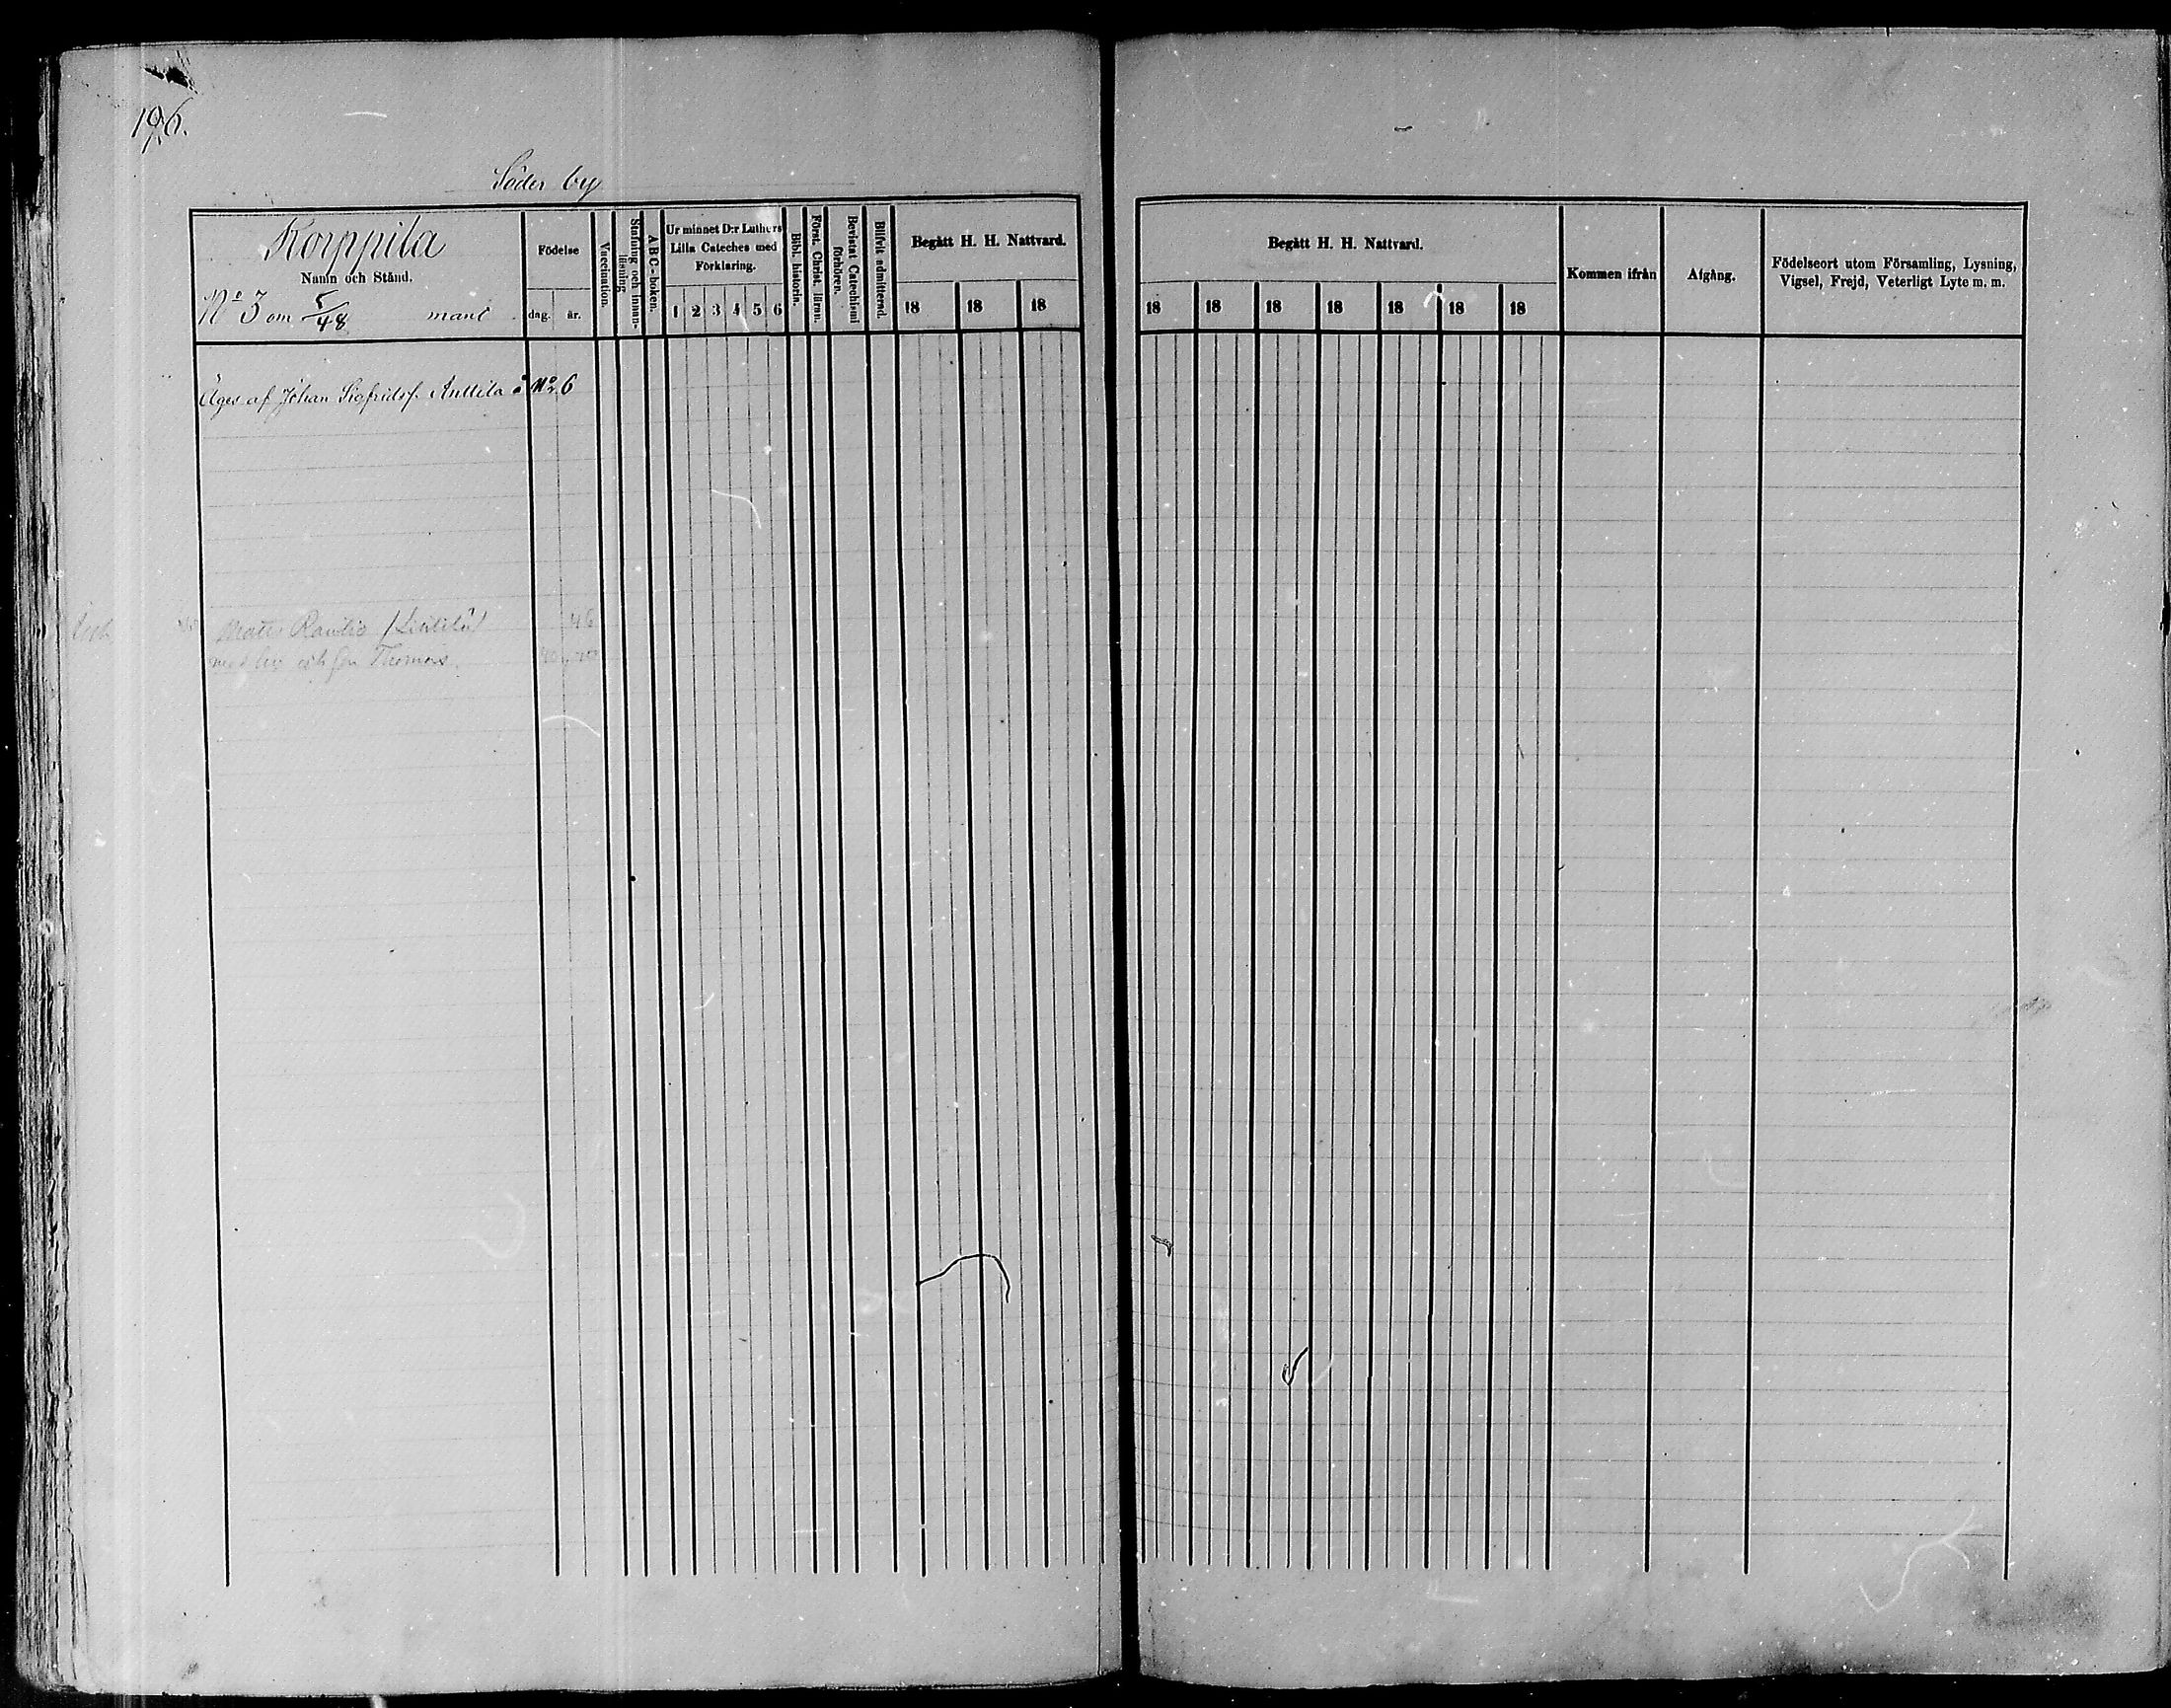 196.
Söder by
Korppila
Namn och Stånd.
No 3 om 5/48 mant
Födelse
dag. år.
Vaccination.
Stafning och innan-
läsning
A B C-boken.
Ur minnet D:r Luthers
Lilla Cateches med
Förklaring.
1 2 3 4 5 6
Bibl. historia.
Först. Christ. läran.
Bevistat Catechismi
förhören.
Blifvit admitterad.
Begått H. H. Nattvard.
18 18 18
Begått H. H. Nattvard.
18 18 18 18 18 18 18
Kommen ifrån
Afgång.
Födelseort utom Församling, Lysning,
Vigsel, Frejd, Veterligt Lyte m. m.
Äges af Johan Sigfridsf. Anttila å No 6
Matts Rautio 46
och Thomas.